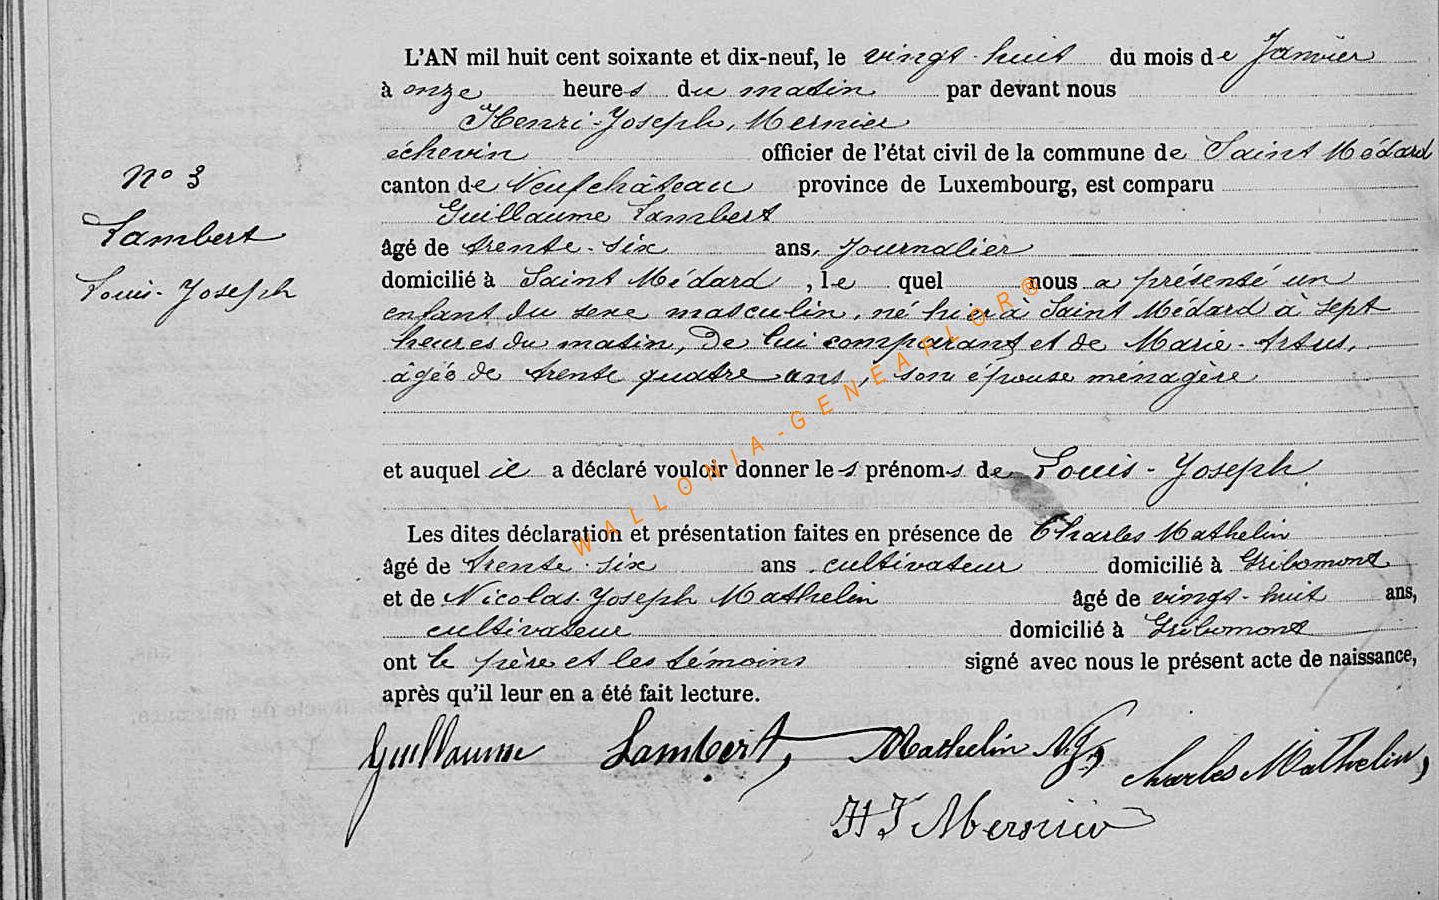 L'AN mil huit cent soixante et dix-neuf, le vingt-huit du mois de Janvier
à onze heures du matin par devant nous
Henri-Joseph, Mernier
échevin officier de l'état civil de la commune de Saint Médard
canton de Neufchâteau province de Luxembourg, est comparu
Guillaume Lambert
âgé de trente-six ans, Journalier
domicilié à Saint Médard, le quel nous a présenté un
enfant du sexe masculin, né hier à Saint Médard à sept
heures du matin, De lui comparant et de Marie-Artus,
âgée de trente quatre ans, son épouse ménagère
et auquel il a déclaré vouloir donner les prénoms de Louis-Joseph
Les dites déclaration et présentation faites en présence de Charles Mathelin
âgé de trente-six ans cultivateur domicilié à Gribomont
et de Nicolas-Joseph Mathelin âgé de vingt-huit ans,
cultivateur domicilié à Gribomont
ont le père et les témoins signé avec nous le présent acte de naissance,
après qu'il leur en a été fait lecture.
Guillaume Lambert, Mathelin N.J, Charles Mathelin,
H J Mernier
No 3
Lambert
Louis-Joseph
WALLONIA-GENEAFLOR®